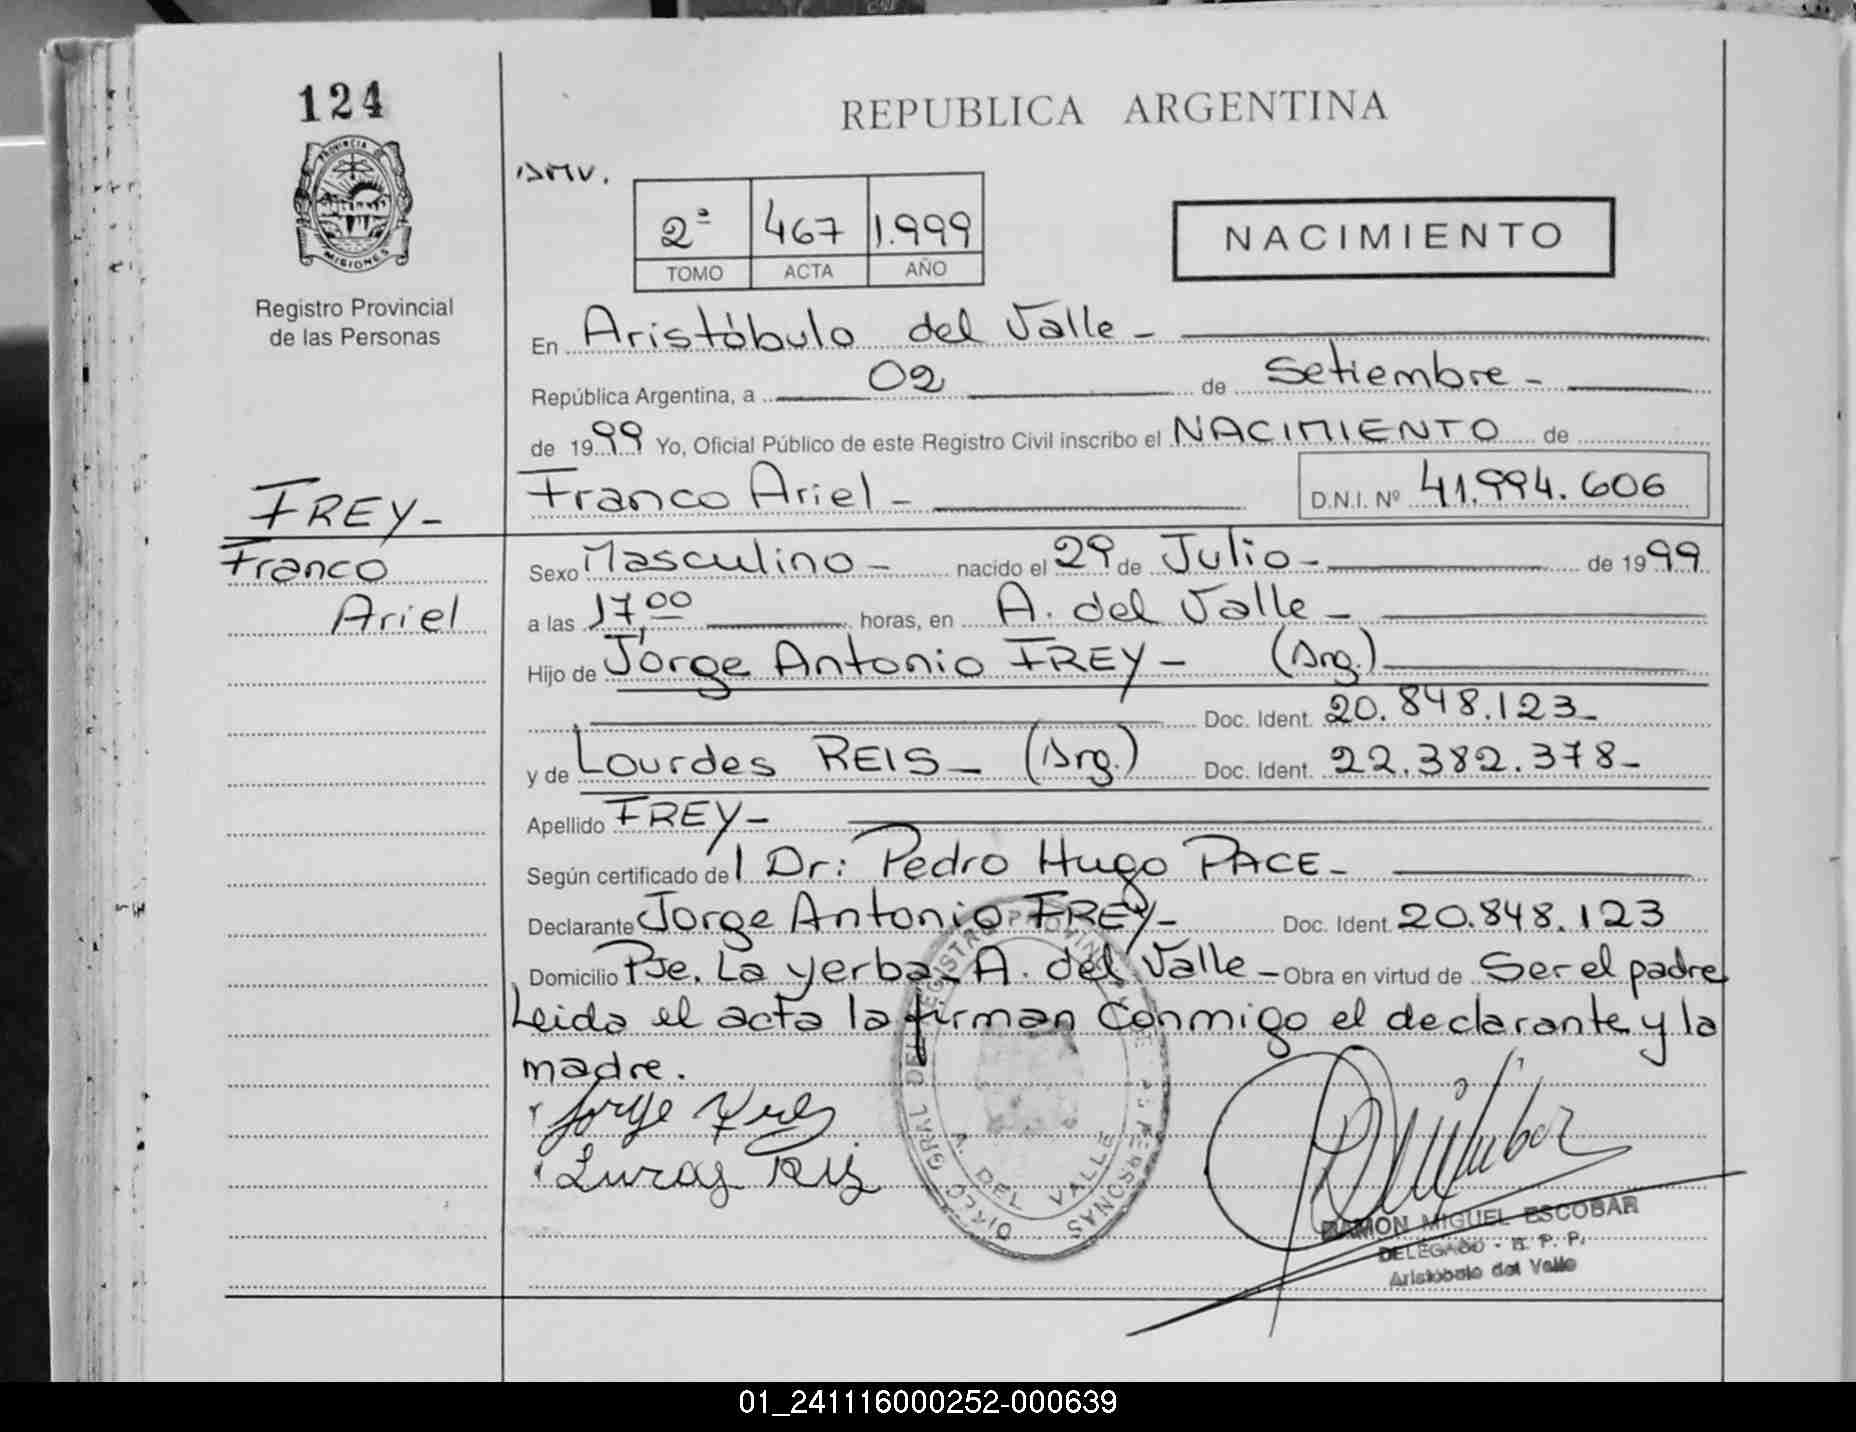 124
PROVINCIA DE
MISIONES
Registro Provincial
de las Personas
FREY-
Franco
Ariel
REPUBLICA ARGENTINA
2ª 467 1.999
TOMO ACTA AÑO
NACIMIENTO
En Aristóbulo del Valle-
República Argentina, a 02 de Setiembre-
de 1999 Yo, Oficial Público de este Registro Civil inscribo el NACIMIENTO de
Franco Ariel- D.N.I. Nº 41.994.606
Sexo Masculino- nacido el 29 de Julio- de 1999
a las 17,00 horas, en A. del Valle-
Hijo de Jorge Antonio FREY- (Arg.)
Doc. Ident. 20.848.123-
y de Lourdes REIS- (Arg.) Doc. Ident. 22.382.378-
Apellido FREY-
Según certificado del Dr: Pedro Hugo PACE-
Declarante Jorge Antonio FREY- Doc. Ident. 20.848.123
Domicilio Pje. La yerba-A. del Valle- Obra en virtud de Ser el padre
Leida el acta la firman Conmigo el declarante y la
madre.
Jorge Frey
A. DEL VALLE
RAMON MIGUEL ESCOBAR
DELEGADO - R. P. P.
Aristobulo del Valle
01_241116000252-000639